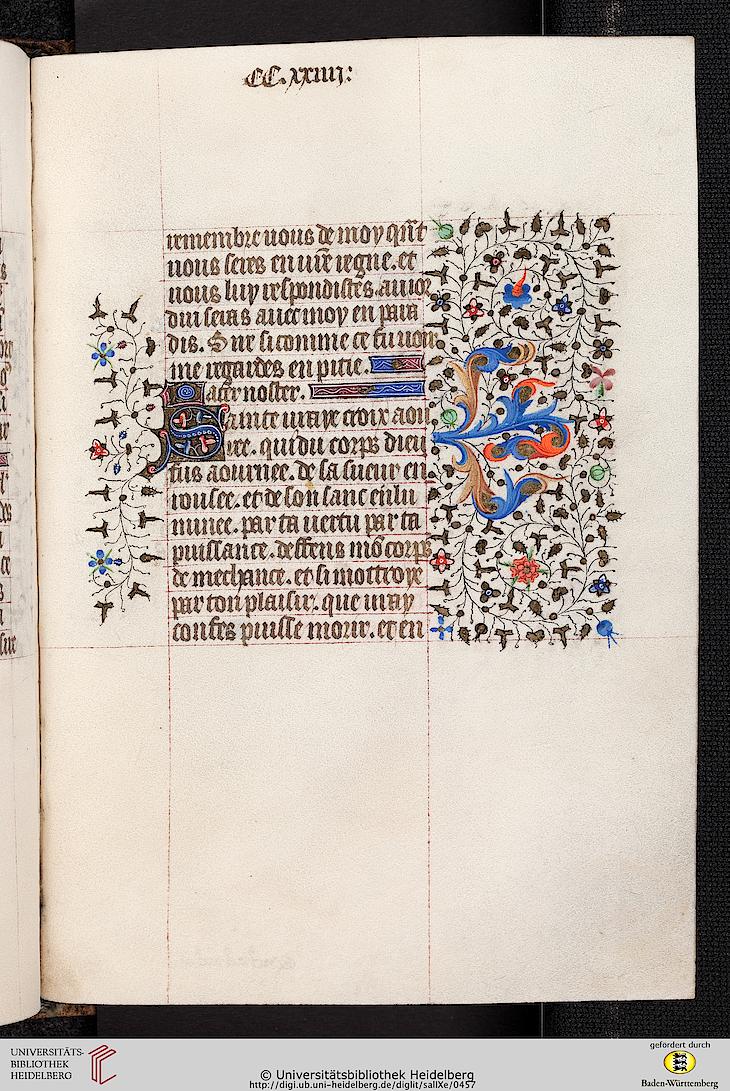 CC.xxiiij:
remembre uous de moy qñt
uous seres en vr̃e regne. et
uous luy respondistes. auior
dui seras auec moy en para
dis. Sire si comme ce fu uoir
me regardes en pitie.
Pater noster.
Sainte uraye croix aou
ree. qui du corps dieu
fus aournee. de sa sueur en
rousee. et de son sanc enlu
minee. par ta uertu par ta
puissance. deffens mō corps
de mechance. et si mottroye
par ton plaisir. que uray
confes puisse morir. et en
UNIVERSITÄTS-
BIBLIOTHEK
HEIDELBERG
© Universitätsbibliothek Heidelberg
http://digi.ub.uni-heidelberg.de/diglit/salIXe/0457
gefördert durch
Baden-Württemberg